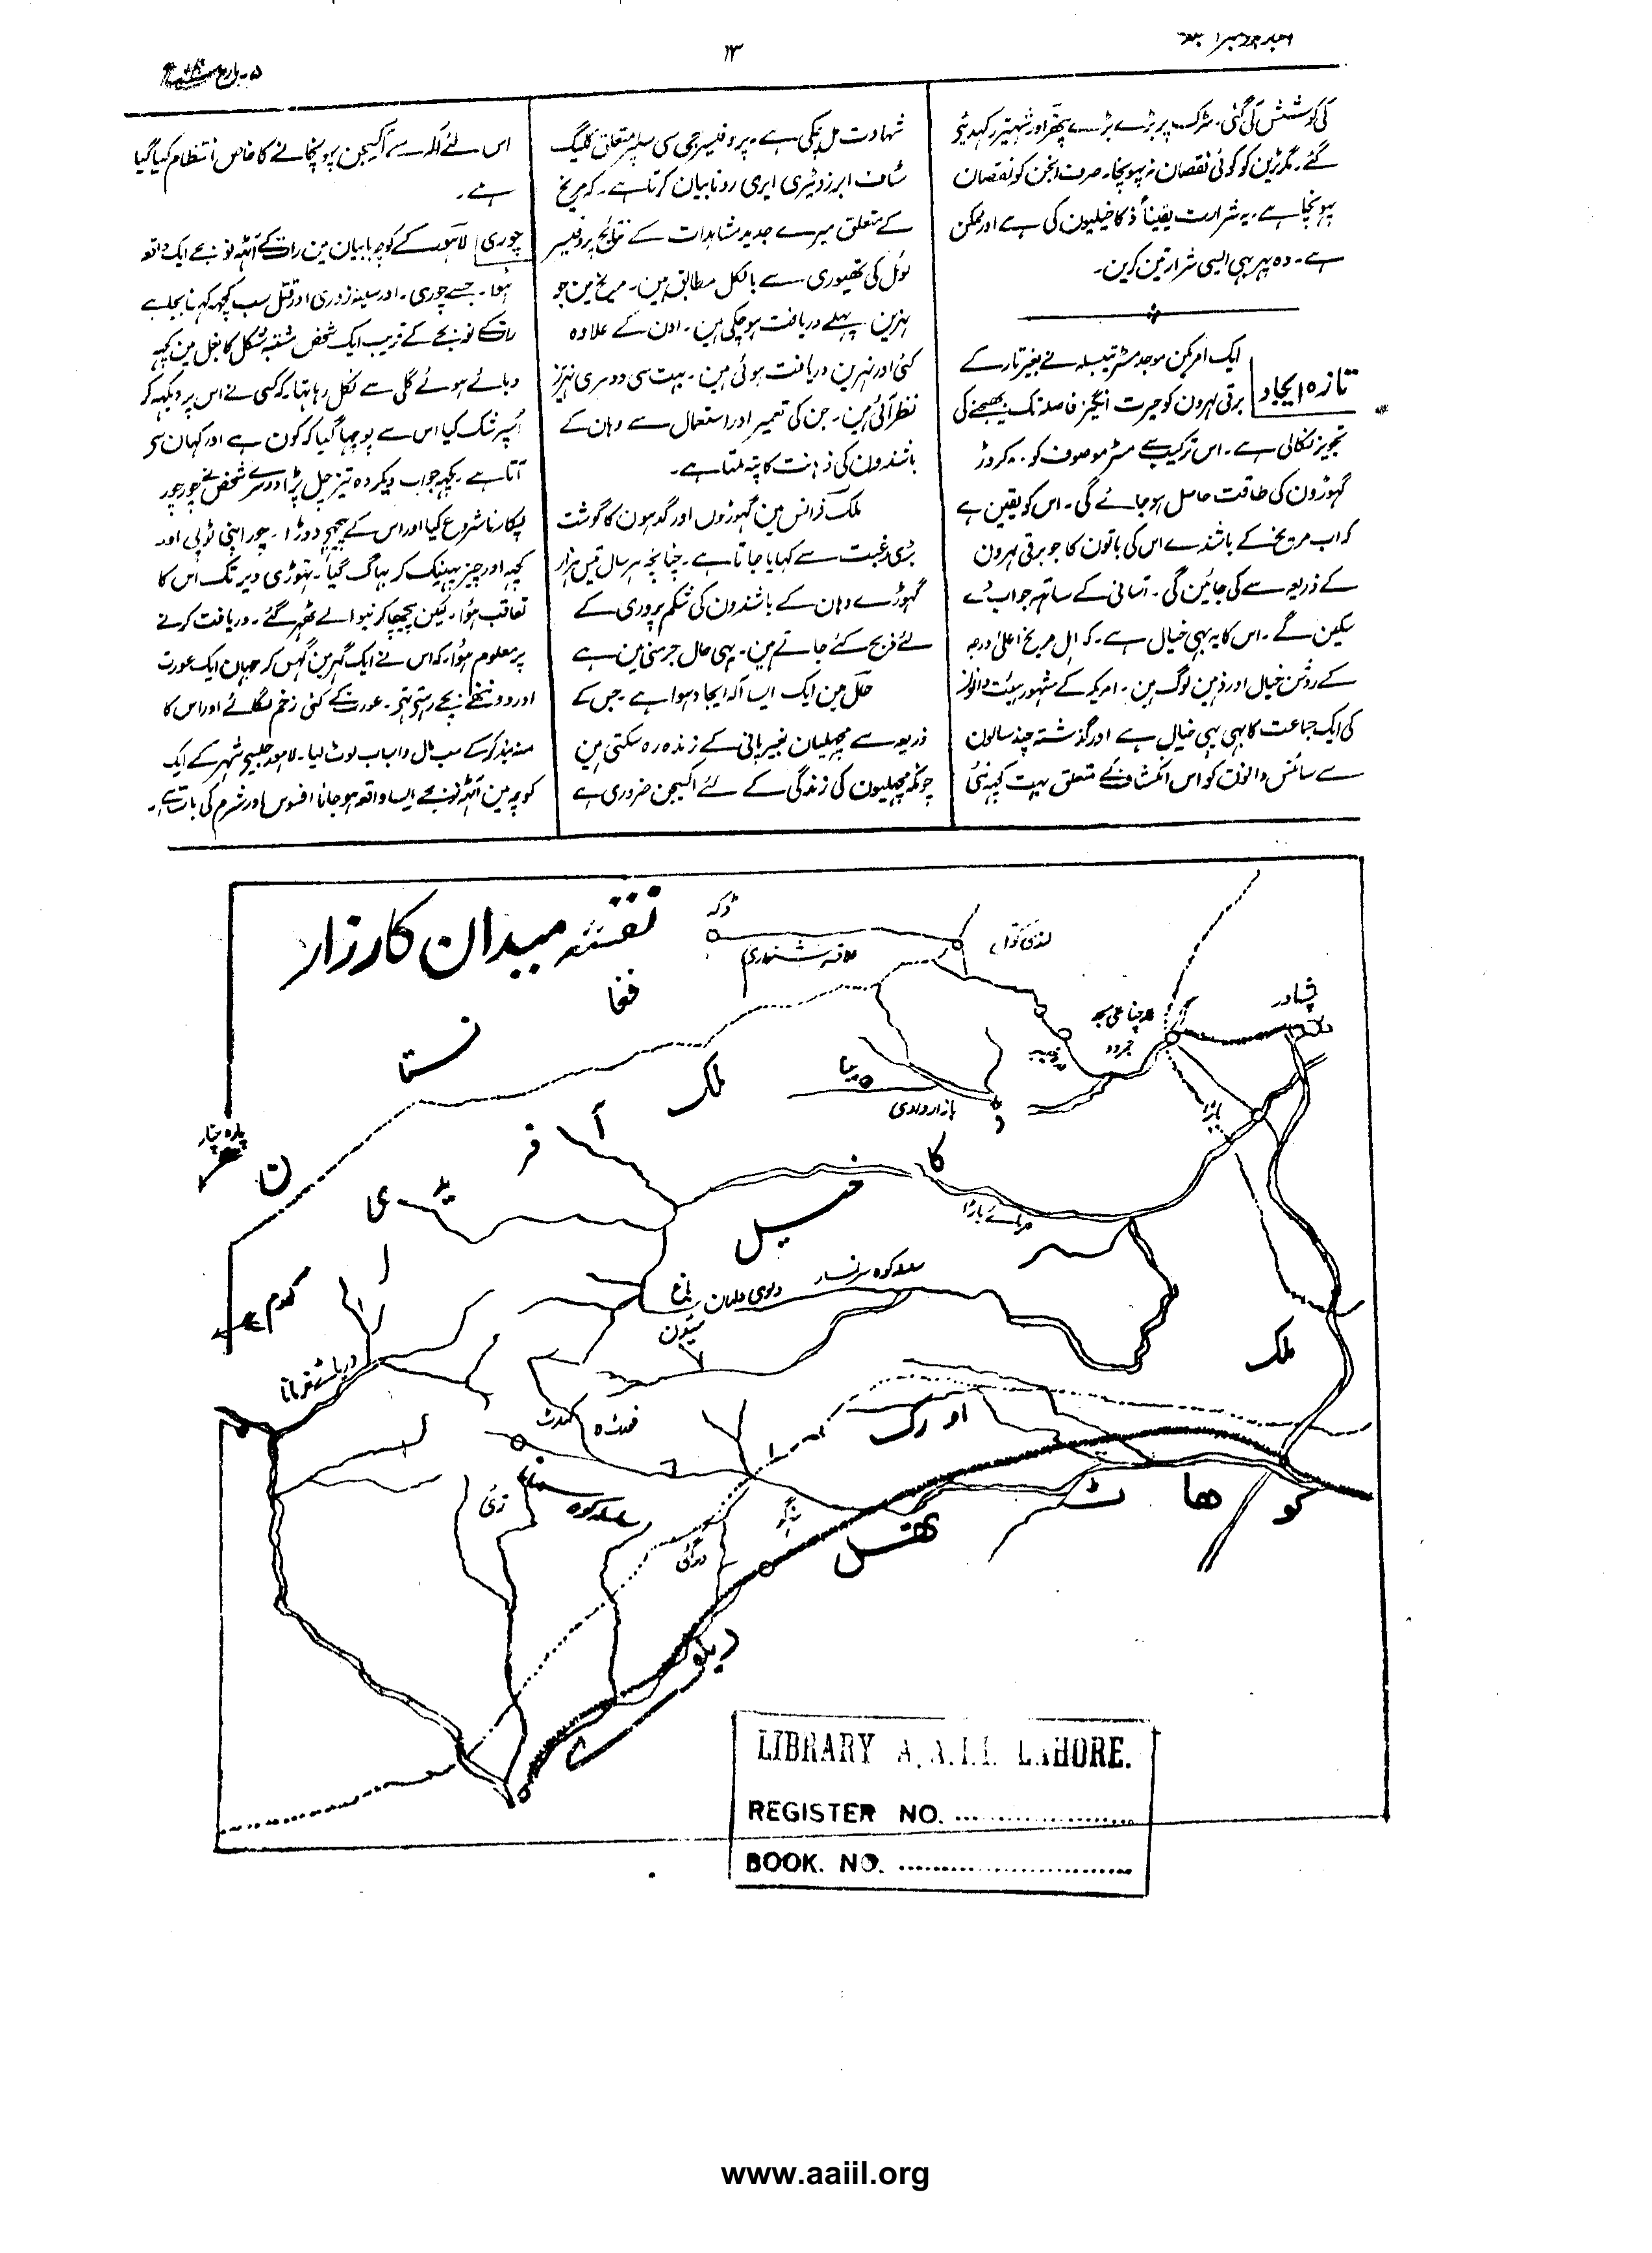 ۱۳
کی کوشش کی گئی۔ سڑک پر بڑے بڑے پتھر اور شہتیر رکھدئیے
گئے۔ مگر ٹرین کو کوئی نقصان نہ پہونچا۔ صرف انجن کو نقصان
پہونچا ہے۔ یہ شرارت یقیناً ذکا خیلیون کی ہے اور ممکن
ہے۔ وہ پہر بہی ایسی شرارتین کرین۔
تازہ ایجاد
ایک امریکن موجد مسٹر تیسلہ نے بغیر تار کے
برقی لہرون کو حیرت انگیز فاصلہ تک بھیجنے کی
تجویز نکالی ہے۔ اس ترکیب سے مسٹر موصوف کو کروڑ
گہوڑون کی طاقت حاصل ہو جائے گی۔ اس کو یقین ہے
کہ اب مریخ کے باشندے اس کی باتون کا جو برقی لہرون
کے ذریعہ سے کی جائین گی۔ آسانی کے ساتھ جواب دے
سکین گے۔ اس کا یہ بہی خیال ہے۔ کہ اہل مریخ اعلیٰ درجہ
کے روشن خیال اور ذہین لوگ ہین۔ امریکہ کے مشہور ہیئت دانون
کی ایک جماعت کا بہی یہی خیال ہے اور گذشتہ چند سالون
سے سائنس دانون کو اس انکشاف کے متعلق بہت کچہ نئی
شہادت مل چکی ہے۔ پروفیسر جی سی متعلق کلیگ
سٹاف ابزرویٹری ایری زونا بیان کرتا ہے۔ کہ مریخ
کے متعلق میرے جدید مشاہدات کے نتائج پروفیسر
لوئل کی تھیوری سے بالکل مطابق ہین۔ مریخ مین جو
نہرین پہلے دریافت ہو چکی ہین۔ اون کے علاوہ
کئی اور نہرین دریافت ہوئی ہین۔ بہت سی دوسری نہرین
نظر آئی ہین۔ جن کی تعمیر اور استعمال سے وہان کے
باشندون کی ذہانت کا پتہ ملتا ہے۔
ملک فرانس مین گہوڑوں اور گدہون کا گوشت
بڑی رغبت سے کہایا جاتا ہے۔ چنانچہ ہر سال تیس ہزار
گہوڑے وہان کے باشندون کی شکم پروری کے
لئے ذبح کئے جاتے ہین۔ یہی حال جرمنی مین ہے
حال مین ایک ایسا آلہ ایجاد ہوا ہے۔ جس کے
ذریعہ سے مچھلیان بغیر پانی کے زندہ رہ سکتی ہین
چونکہ مچھلیون کی زندگی کے لئے اکسیجن ضروری ہے
اس لئے آلہ سے آکسیجن پہونچانے کا خاص انتظام کیا گیا
ہے۔
چوری
لاہور کے کوچہ بابیان مین رات کے آٹھ نو بجے ایک واقعہ
ہوا۔ جسے چوری۔ اور سینہ زوری اور قتل سب کچہ کہنا بجا ہے
رات کے نو بجے کے قریب ایک شخص مشتبہ شکل کا بغل مین کچہ
دبائے ہوئے گلی سے نکل رہا تہا۔ کہ کسی نے اس پر دیکہہ کر
اُسپر شک کیا اس سے پوچھا گیا کہ کون ہے اور کہان سے
آتا ہے۔ کچہ جواب دیکر وہ تیز چل پڑا دوسرے شخص نے چور چور
پکارنا شروع کیا اور اس کے پیچھے دوڑا۔ چور اپنی ٹوپی اور
کچہ اور چیز پہینک کر بہاگ گیا۔ تہوڑی دیر تک اس کا
تعاقب ہوا۔ لیکن پیچھا کرنیوالے ٹھہر گئے۔ دریافت کرنے
پر معلوم ہوا۔ کہ اس نے ایک گہر مین گہس کر جہان ایک عورت
اور دو ننھے بچے رہتے تہے۔ عورت کے کئی زخم لگائے اور اس کا
منہ بند کر کے سب مال و اسباب لوٹ لیا۔ لاہور جیسے شہر کے ایک
کوچہ مین آٹھ نو بجے ایسا واقعہ ہو جانا افسوس اور شرم کی بات ہے۔
نقشہ میدان کارزار
ڈکہ
لنڈی کوتل
علاقہ شنواری
فغا
نستا
ن
پشاور
جمرود
باڑا
ملک
بازار وادی
پارہ چنار
آ
فر
ید
ی
کا
خیل
دریائے باڑا
سلسلہ کوہ
باغ
وادی
کرم
ملک
اورک
زئی
سلسلہ کوہ سمانا
درگئی
ہنگو
کوہاٹ
تھل
ریلوے
LIBRARY A.A.I.I. LAHORE.
REGISTER NO. ....................
BOOK. NO. ....................
www.aaiil.org